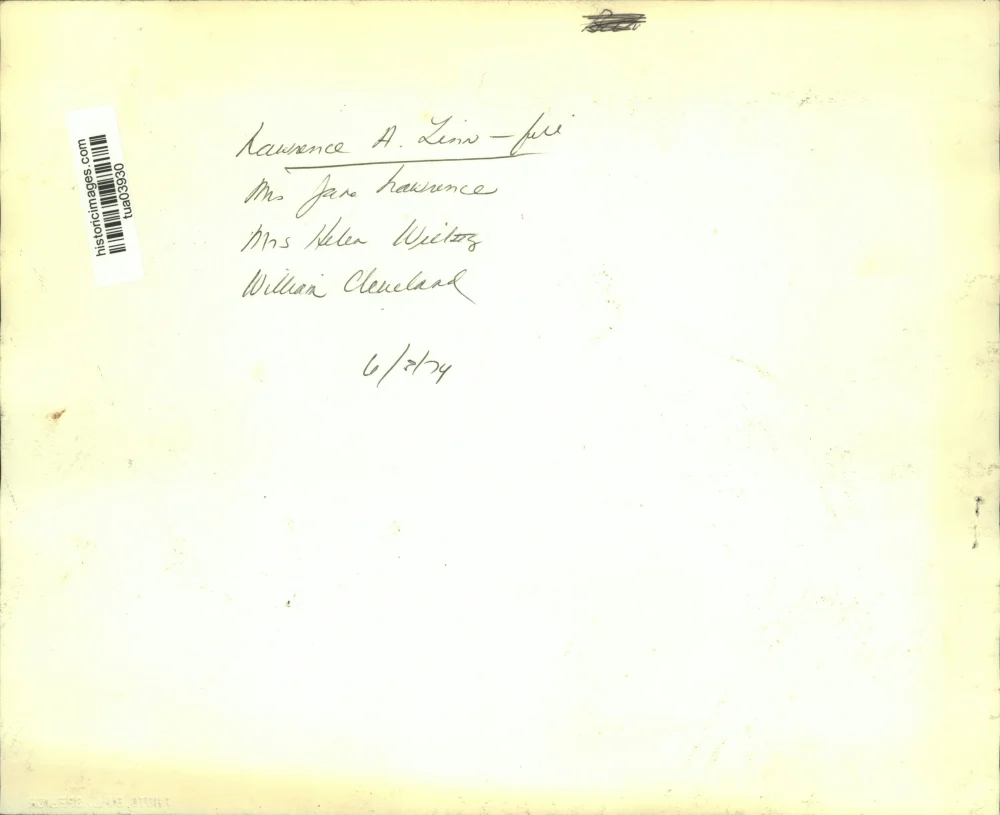 Lawrence A. Linn — file
Mrs Jane Lawrence
Mrs Helen
William Cleveland
6/3/74
historicimages.com
tua03930